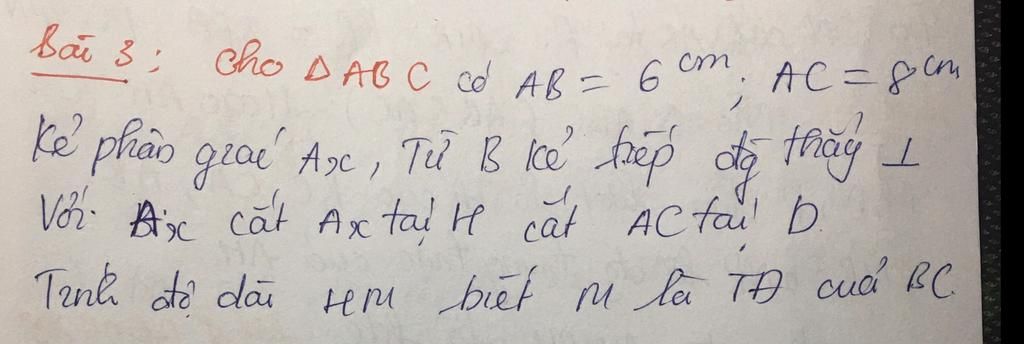 Bài 3; Cho Δ ABC có AB = 6 cm; AC = 8 cm
Kẻ phân giác Ax, Từ B kẻ tiếp đg thẳg ⊥
Với Ax cắt Ax tại H cắt AC tại D.
Tính độ dài HM biết M là TĐ của BC.